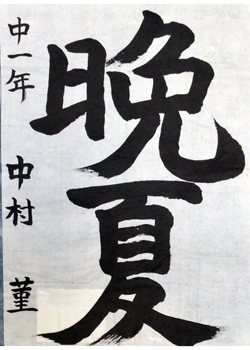 晩夏
中一年 中村 菫